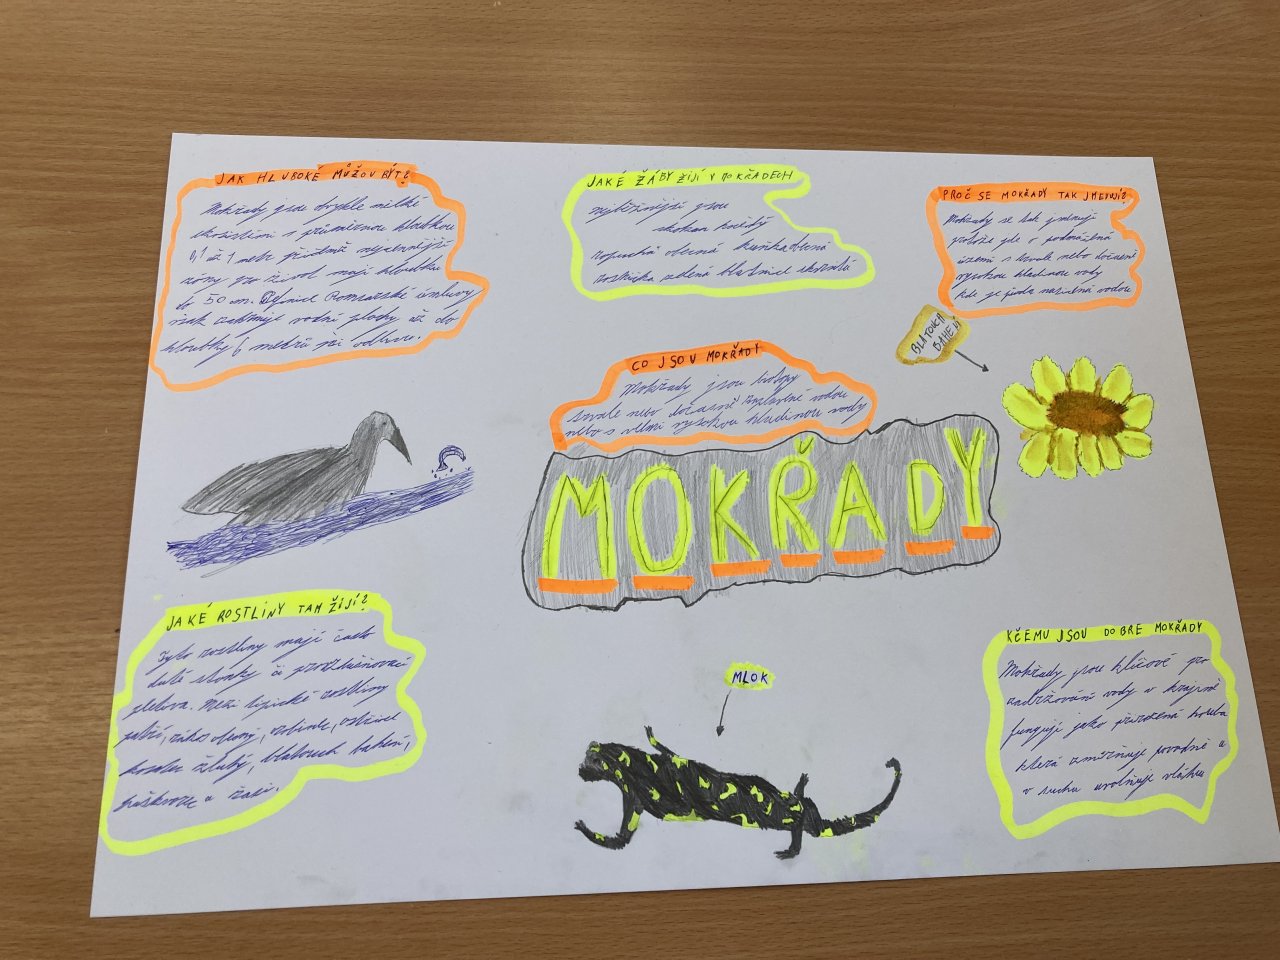 JAK HLUBOKÉ MŮŽOU BÝT?
Mokřady jsou obvykle mělké
ekosystémy s průměrnou hloubkou
0,1 až 1 metr přičemž nejcennější
zóny pro život mají hloubku
do 50 cm. Definice Ramsarské úmluvy
však zahrnuje vodní plochy až do
hloubky 6 metrů při odlivu.
JAKÉ ŽÁBY ŽIJÍ V MOKŘADECH
nejběžnější jsou
skokan hnědý
ropucha obecná kuňka obecná
rosnička zelená blatnice skvrnitá
PROČ SE MOKŘADY TAK JMENUJÍ?
Mokřady se tak jmenují
protože jde o podmáčená
území s trvale nebo dočasně
vysokou hladinou vody
kde je půda nasicená vodou
BLATOUCH
BAHENÍ
CO JSOU MOKŘADY
Mokřady jsou biotopy
trvale nebo dočasně zaplavené vodou
nebo s velmi vysokou hladinou vody
MOKŘADY
JAKÉ ROSTLINY TAM ŽIJÍ?
Tyto rostliny mají často
duté stonky či provzdušňovací
pletiva. Mezi typické rostliny
patří, rákos obecný, orobinec, ostřice
kosatec žlutý, blatouch bahení,
puškvorec a
MLOK
KČEMU JSOU DOBRÉ MOKŘADY
Mokřady jsou klíčové pro
zadržování vody v krajině
fungují jako přirozená houba
která zmírňuje povodně a
v suchu uvolňuje vláhu